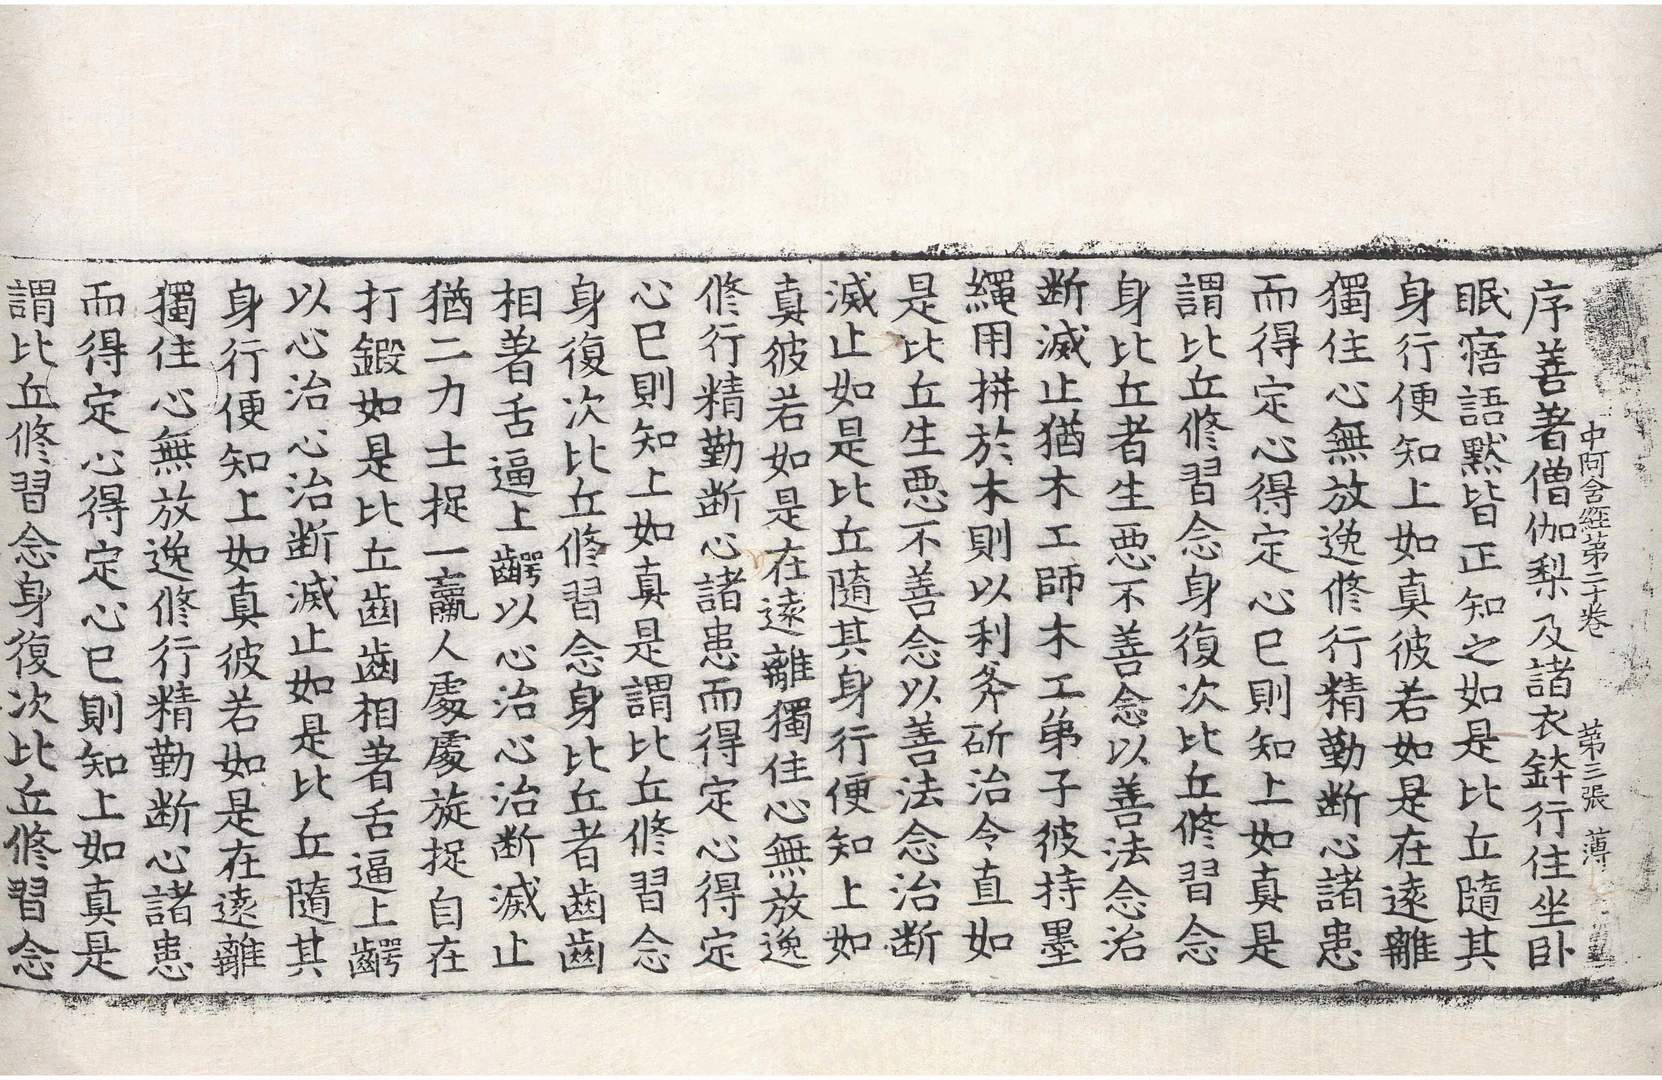 中阿含經第二十卷　第三張　薄
序善著僧伽梨及諸衣鉢行住坐卧
眠寤語默皆正知之如是比丘隨其
身行便知上如真彼若如是在遠離
獨住心無放逸修行精勤断心諸患
而得定心得定心已則知上如真是
謂比丘修習念身復次比丘修習念
身比丘者生惡不善念以善法念治
断滅止猶木工師木工弟子彼持墨
繩用拼於木則以利斧斫治令直如
是比丘生惡不善念以善法念治断
滅止如是比丘隨其身行便知上如
真彼若如是在遠離獨住心無放逸
修行精勤断心諸患而得定心得定
心已則知上如真是謂比丘修習念
身復次比丘修習念身比丘者齒齒
相著舌逼上齶以心治心治断滅止
猶二力士捉一羸人處處旋捉自在
打鍛如是比丘齒齒相著舌逼上齶
以心治心治断滅止如是比丘隨其
身行便知上如真彼若如是在遠離
獨住心無放逸修行精勤断心諸患
而得定心得定心已則知上如真是
謂比丘修習念身復次比丘修習念